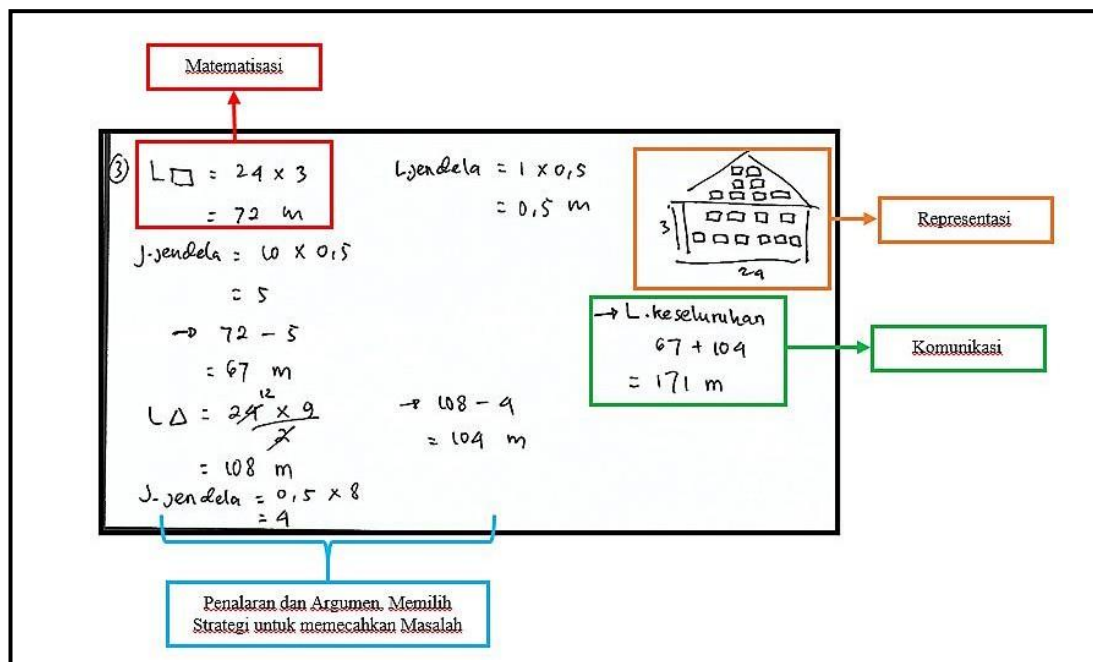 Matematisasi
③ L□ = 24 × 3
= 72 m
J.jendela = 10 × 0,5
= 5
→ 72 - 5
= 67 m
12
L△ = 24 × 9
2
= 108 m
J-jendela = 0,5 × 8
= 4
L.jendela = 1 × 0,5
= 0,5 m
→ 108 - 4
= 104 m
3
24
Representasi
→ L.keseluruhan
67 + 104
= 171 m
Komunikasi
Penalaran dan Argumen, Memilih
Strategi untuk memecahkan Masalah